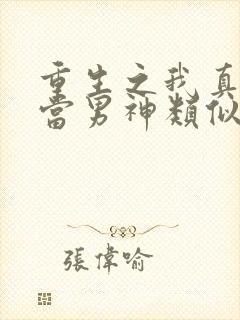 重生之我真
當男神類似
張偉喻